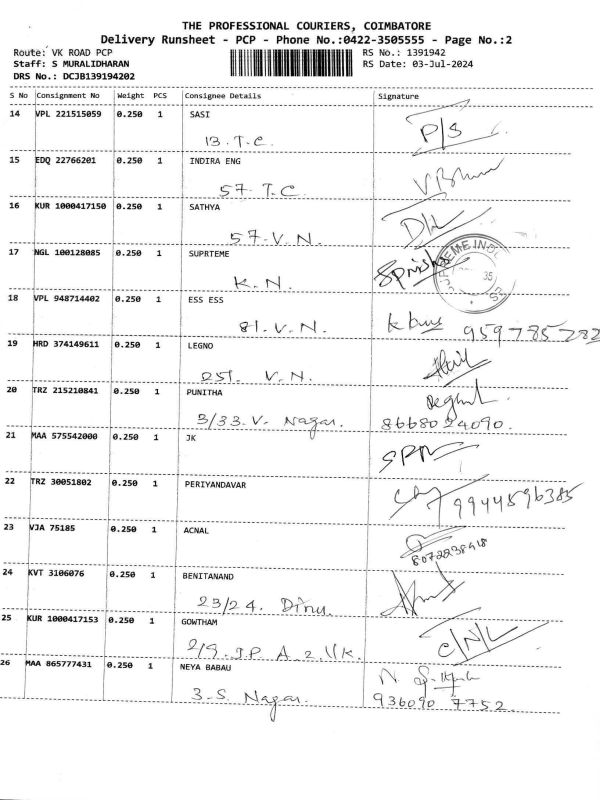 THE PROFESSIONAL COURIERS, COIMBATORE
Delivery Runsheet - PCP - Phone No.:0422-3505555 - Page No.:2
Route: VK ROAD PCP RS No.: 1391942
Staff: S MURALIDHARAN RS Date: 03-Jul-2024
DRS No.: DCJB139194202
S No Consignment No Weight PCS Consignee Details Signature
14 VPL 221515059 0.250 1 SASI
13. T.C. P/S
15 EDQ 22766201 0.250 1 INDIRA ENG
57. T.C
16 KUR 1000417150 0.250 1 SATHYA
57. V.N.
17 NGL 100128085 0.250 1 SUPRTEME
K.N.
18 VPL 948714402 0.250 1 ESS ESS
81. V.N. 9597785282
19 HRD 374149611 0.250 1 LEGNO
251. V.N.
20 TRZ 215210841 0.250 1 PUNITHA
3/33. V. Nagar. 8668024090.
21 MAA 575542000 0.250 1 JK
22 TRZ 30051802 0.250 1 PERIYANDAVAR
9944596385
23 VJA 75185 0.250 1 ACNAL
8072838418
24 KVT 3106076 0.250 1 BENITANAND
23/24.
25 KUR 1000417153 0.250 1 GOWTHAM
C/N/L
26 MAA 865777431 0.250 1 NEYA BABAU
3-S Nagar. 936090 7752.